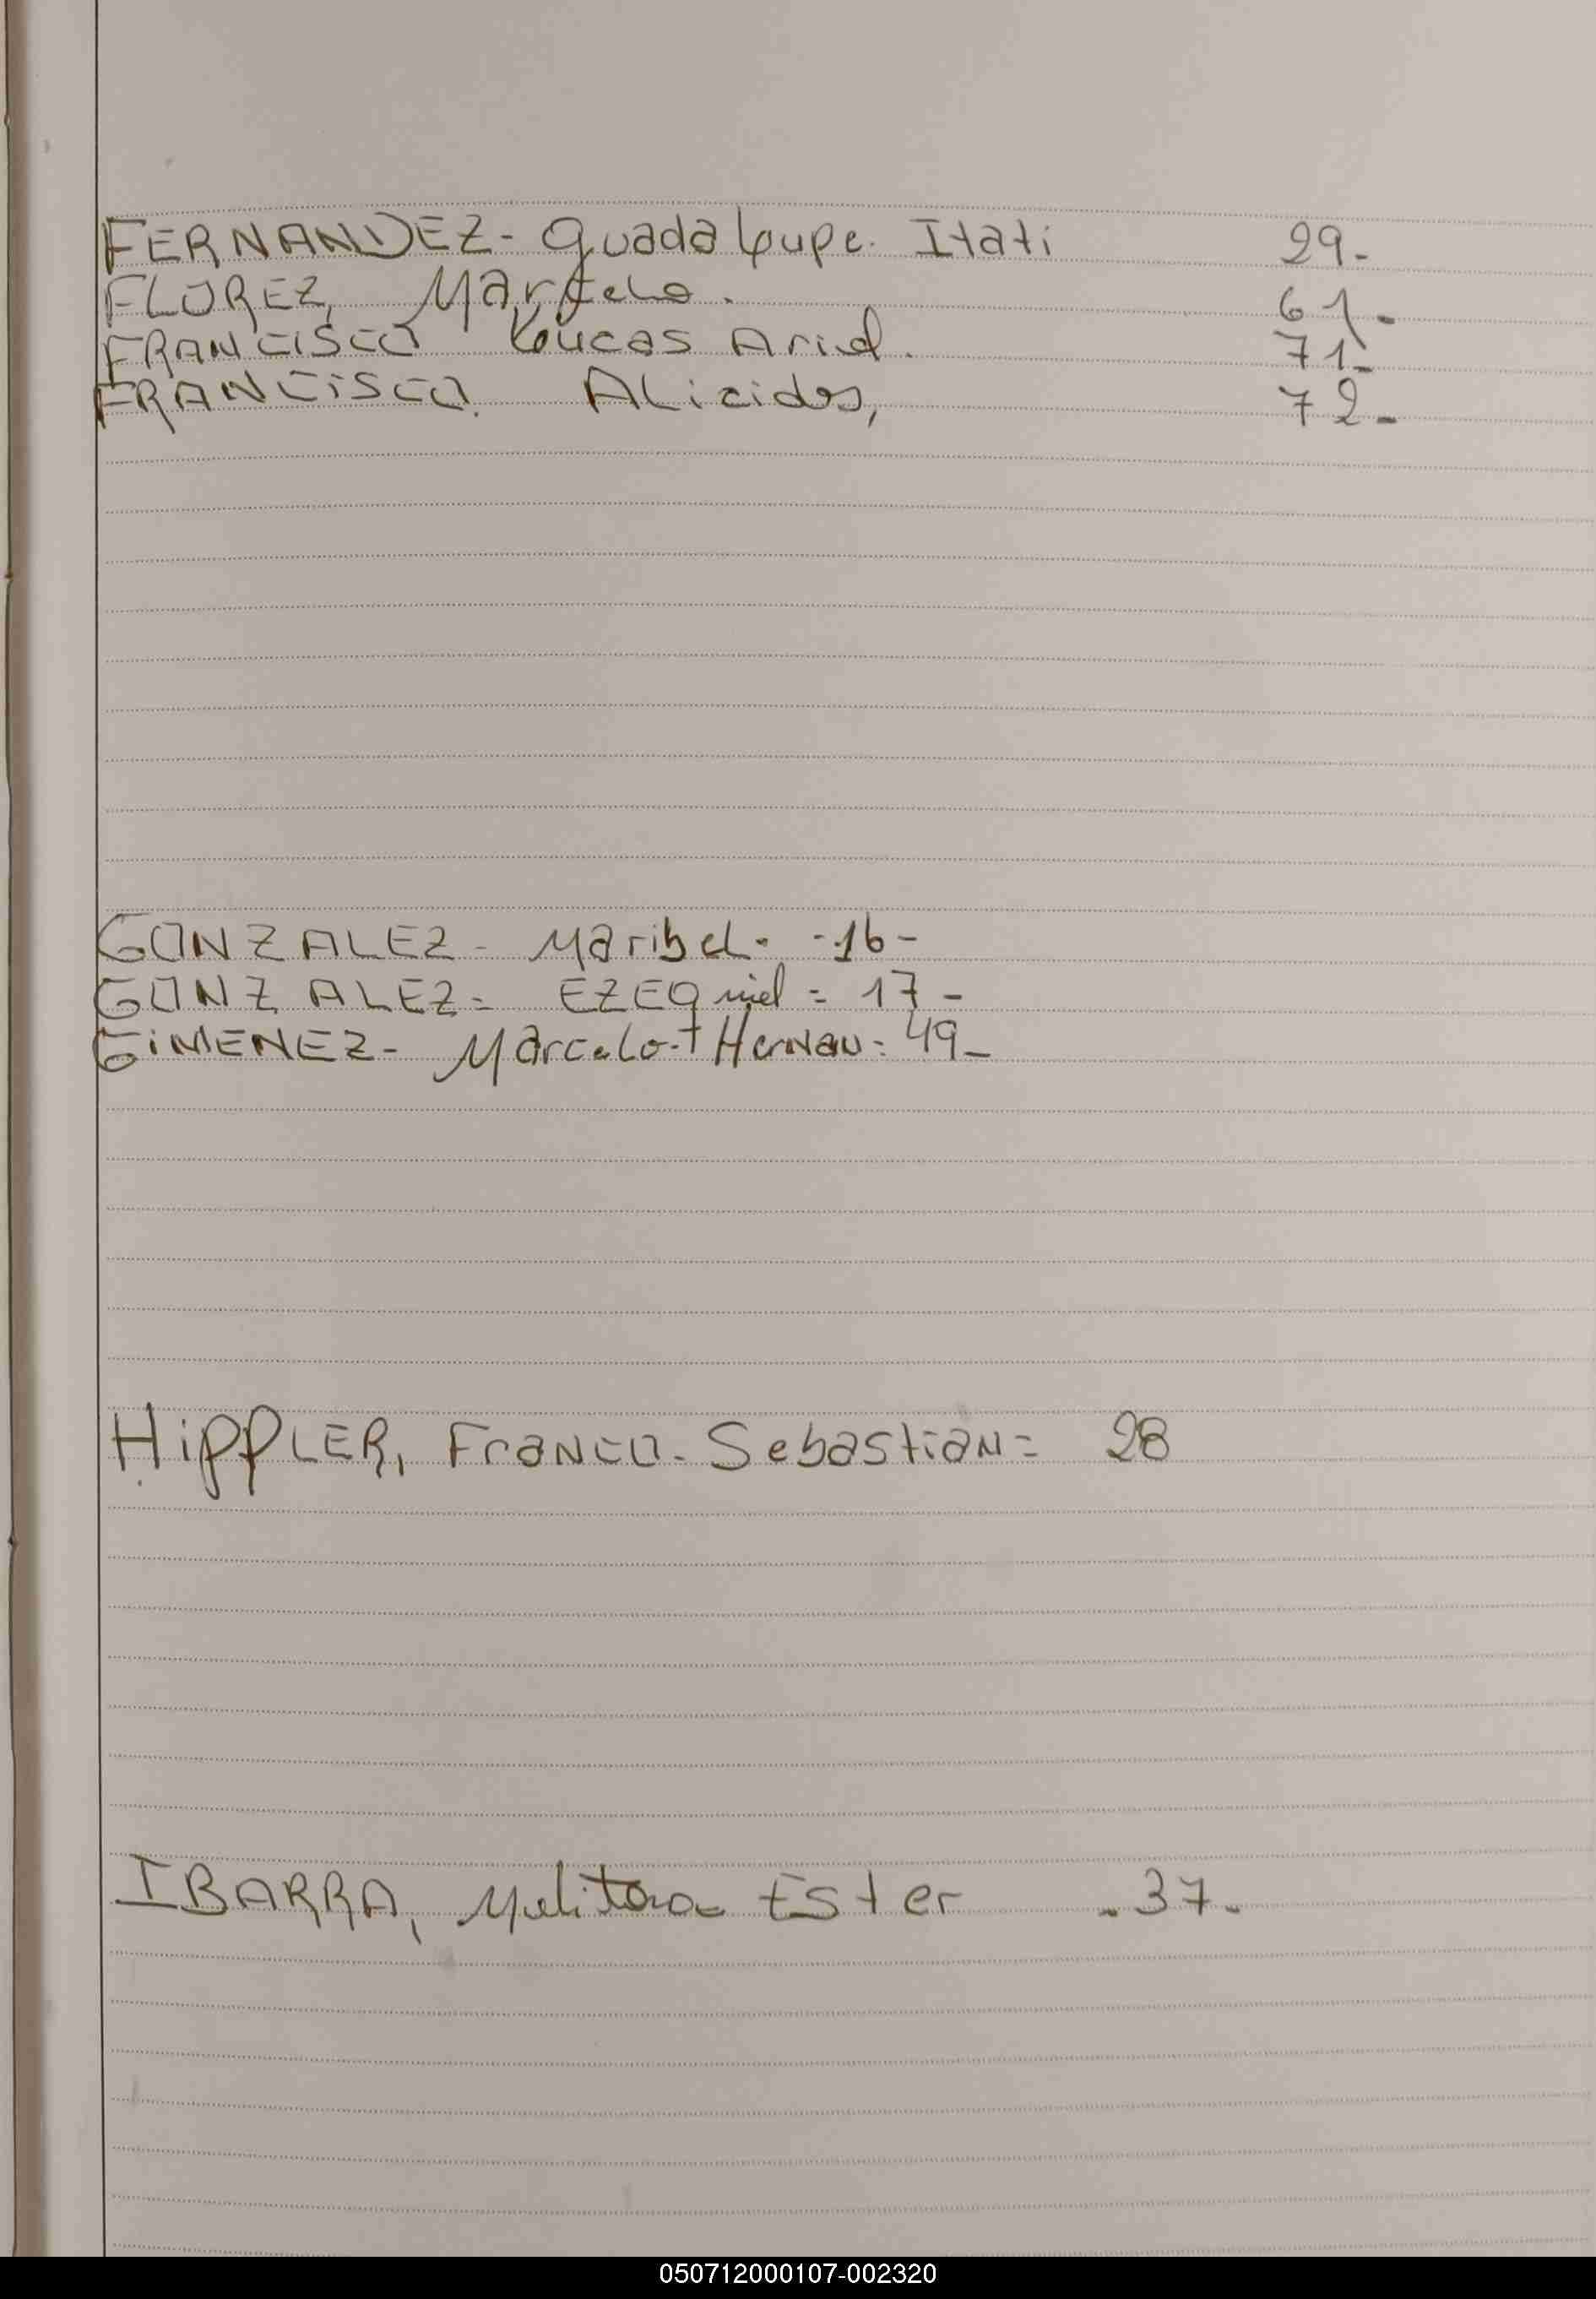 FERNANDEZ- Guadaloupe. Itati 29-
FLOREZ, Marcelo. 61-
FRANCISCO Loucas Ariel. 71-
FRANCISCO. ALicides, 72-
GONZALEZ- Maribel. -16-
GONZALEZ= EZEQuiel = 17-
GiMENEZ- Marcelo-+ HerNaN: 49-
HippLER, FraNCO- SebastiaN= 28
IBARRA, Ester -37-
050712000107-002320